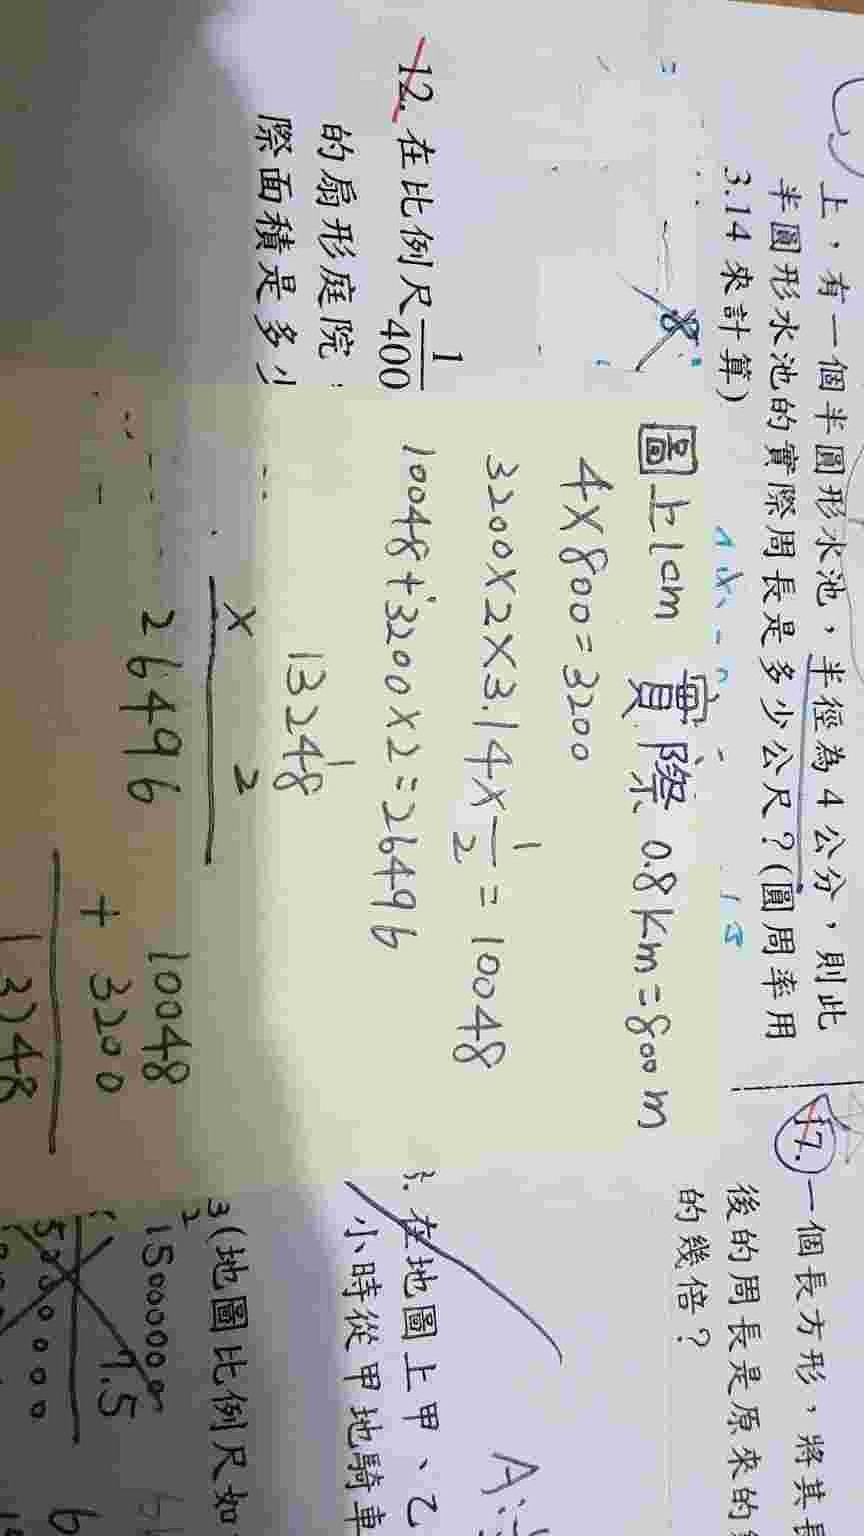 上,有一個半圓形水池,半徑為4公分,則此
半圓形水池的實際周長是多少公尺?(圓周率用
3.14來計算)
圖上1cm 實際 0.8km=800m
4×800=3200
3200×2×3.14×1/2=10048
10048+3200×2=26496
13248
× 2
26496
10048
+ 3200
13248
12. 在比例尺1/400
的扇形庭院
際面積是多少
17. 一個長方形,將其長
後的周長是原來的
的幾倍?
在地圖上甲、乙
小時從甲地騎車
(地圖比例尺如
1500000
7.5
A: